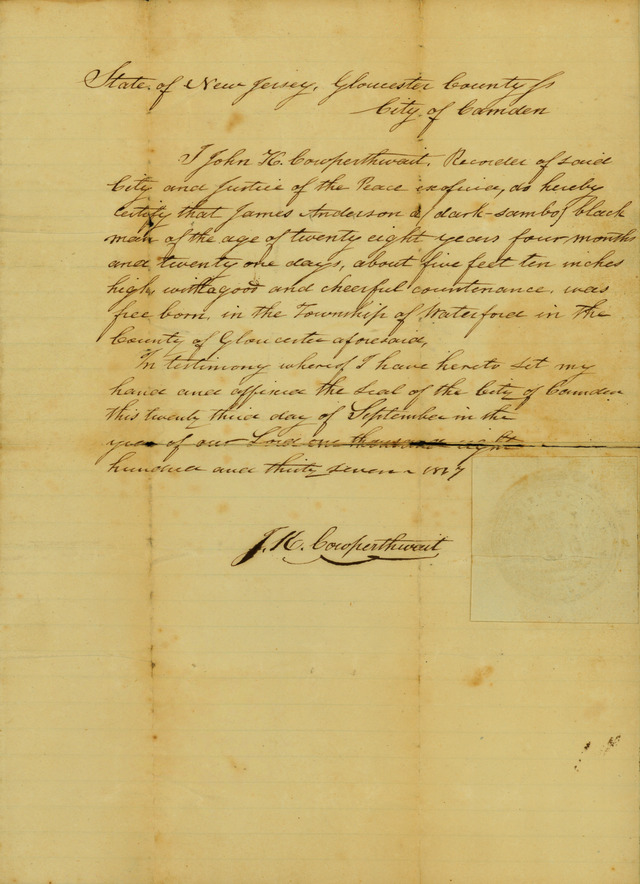 State of New Jersey, Gloucester County Ss
City of Camden
I John K. Cowperthwait, Recorder of said
City and Justice of the Peace exoficio, do hereby
certify that James Anderson a (dark-sambo) black
man of the age of twenty eight years four months
and twenty one days, about five feet ten inches
high, with a good and cheerful countenance. was
free born, in the Township of Waterford in the
County of Gloucester aforesaid,
In testimony whereof I have hereto set my
hand and affixed the seal of the City of Camden
this twenty third day of September in the
year of our Lord one thousand eight
hundred and thirty seven 1837
J. K. Cowperthwait